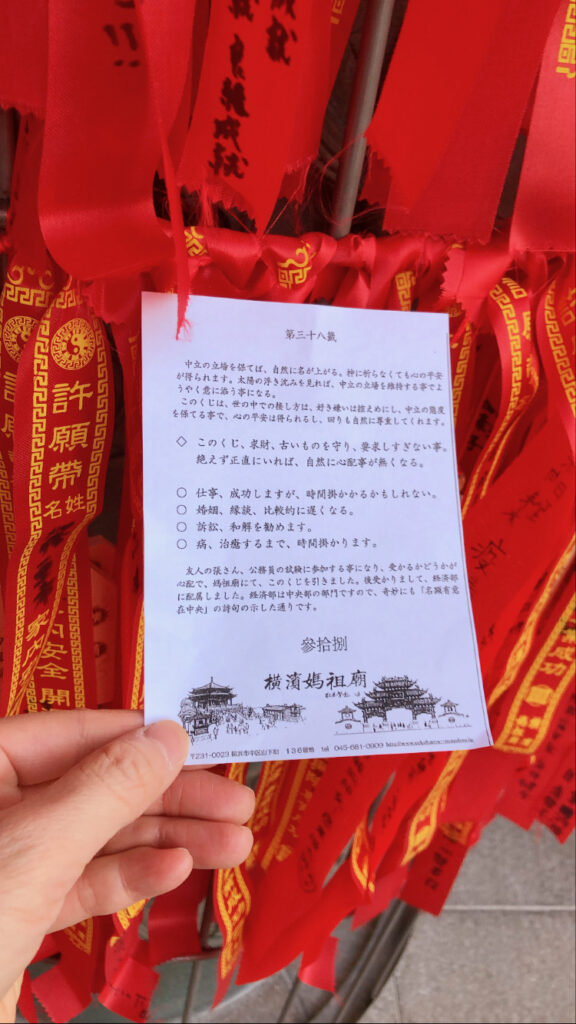 第三十八籤
中立の立場を保てば、自然に名が上がる。神に祈らなくても心の平安
が得られます。太陽の浮き沈みを見れば、中立の立場を維持する事でよ
うやく意に添う事になる。
このくじは、世の中での接し方は、好き嫌いは控えめにし、中立の態度
を保てる事で、心の平安は得られるし、回りも自然に尊重してくれます。
◇ このくじ、求財、古いものを守り、要求しすぎない事。
絶えず正直にいれば、自然に心配事が無くなる。
○ 仕事、成功しますが、時間掛かかるかもしれない。
○ 婚姻、縁談、比較的に遅くなる。
○ 訴訟、和解を勧めます。
○ 病、治癒するまで、時間掛かります。
友人の張さん、公務員の試験に参加する事になり、受かるかどうかが
心配で、媽祖廟にて、このくじを引きました。後受かりまして、経済部
に配属しました。経済部は中央部の部門ですので、奇妙にも「名顕有意
在中央」の詩句の示した通りです。
參拾捌
横濱媽祖廟
〒231-0023 横浜市中区山下町 136番地 tel 045-681-0909
許願帶
姓名
成就